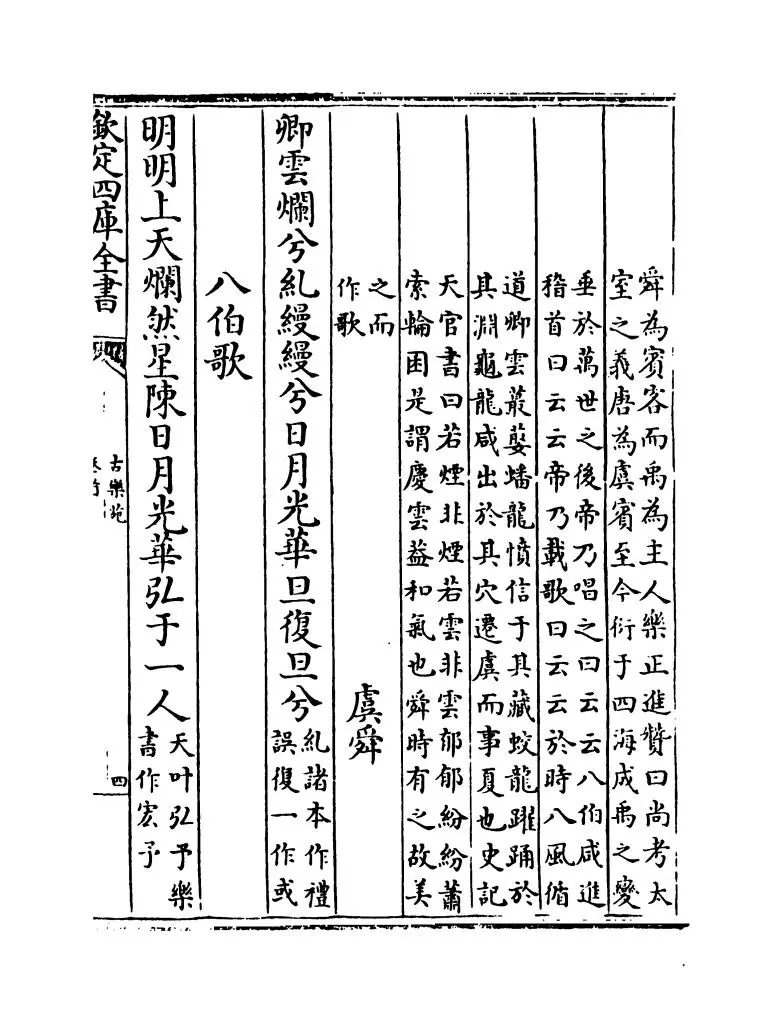 舜為賓客而禹為主人樂正進贊曰尚考太
室之義唐為虞賓至今衍于四海成禹之變
垂於萬世之後帝乃唱之曰云云八伯咸進
稽首曰云云帝乃載歌曰云云於時八風循
道卿雲叢蔟蟠龍憤信于其藏蛟龍躍踊於
其淵龜龍咸出於其穴遷虞而事夏也史記
天官書曰若煙非煙若雲非雲郁郁紛紛蕭
索輪囷是謂慶雲益和氣也舜時有之故美
之而
作歌
虞舜
卿雲爛兮糺縵縵兮日月光華旦復旦兮
糺諸本作禮
誤復一作或
八伯歌
明明上天爛然星陳日月光華弘于一人
天叶弘予樂
書作宏予
欽定四庫全書
古樂苑
四